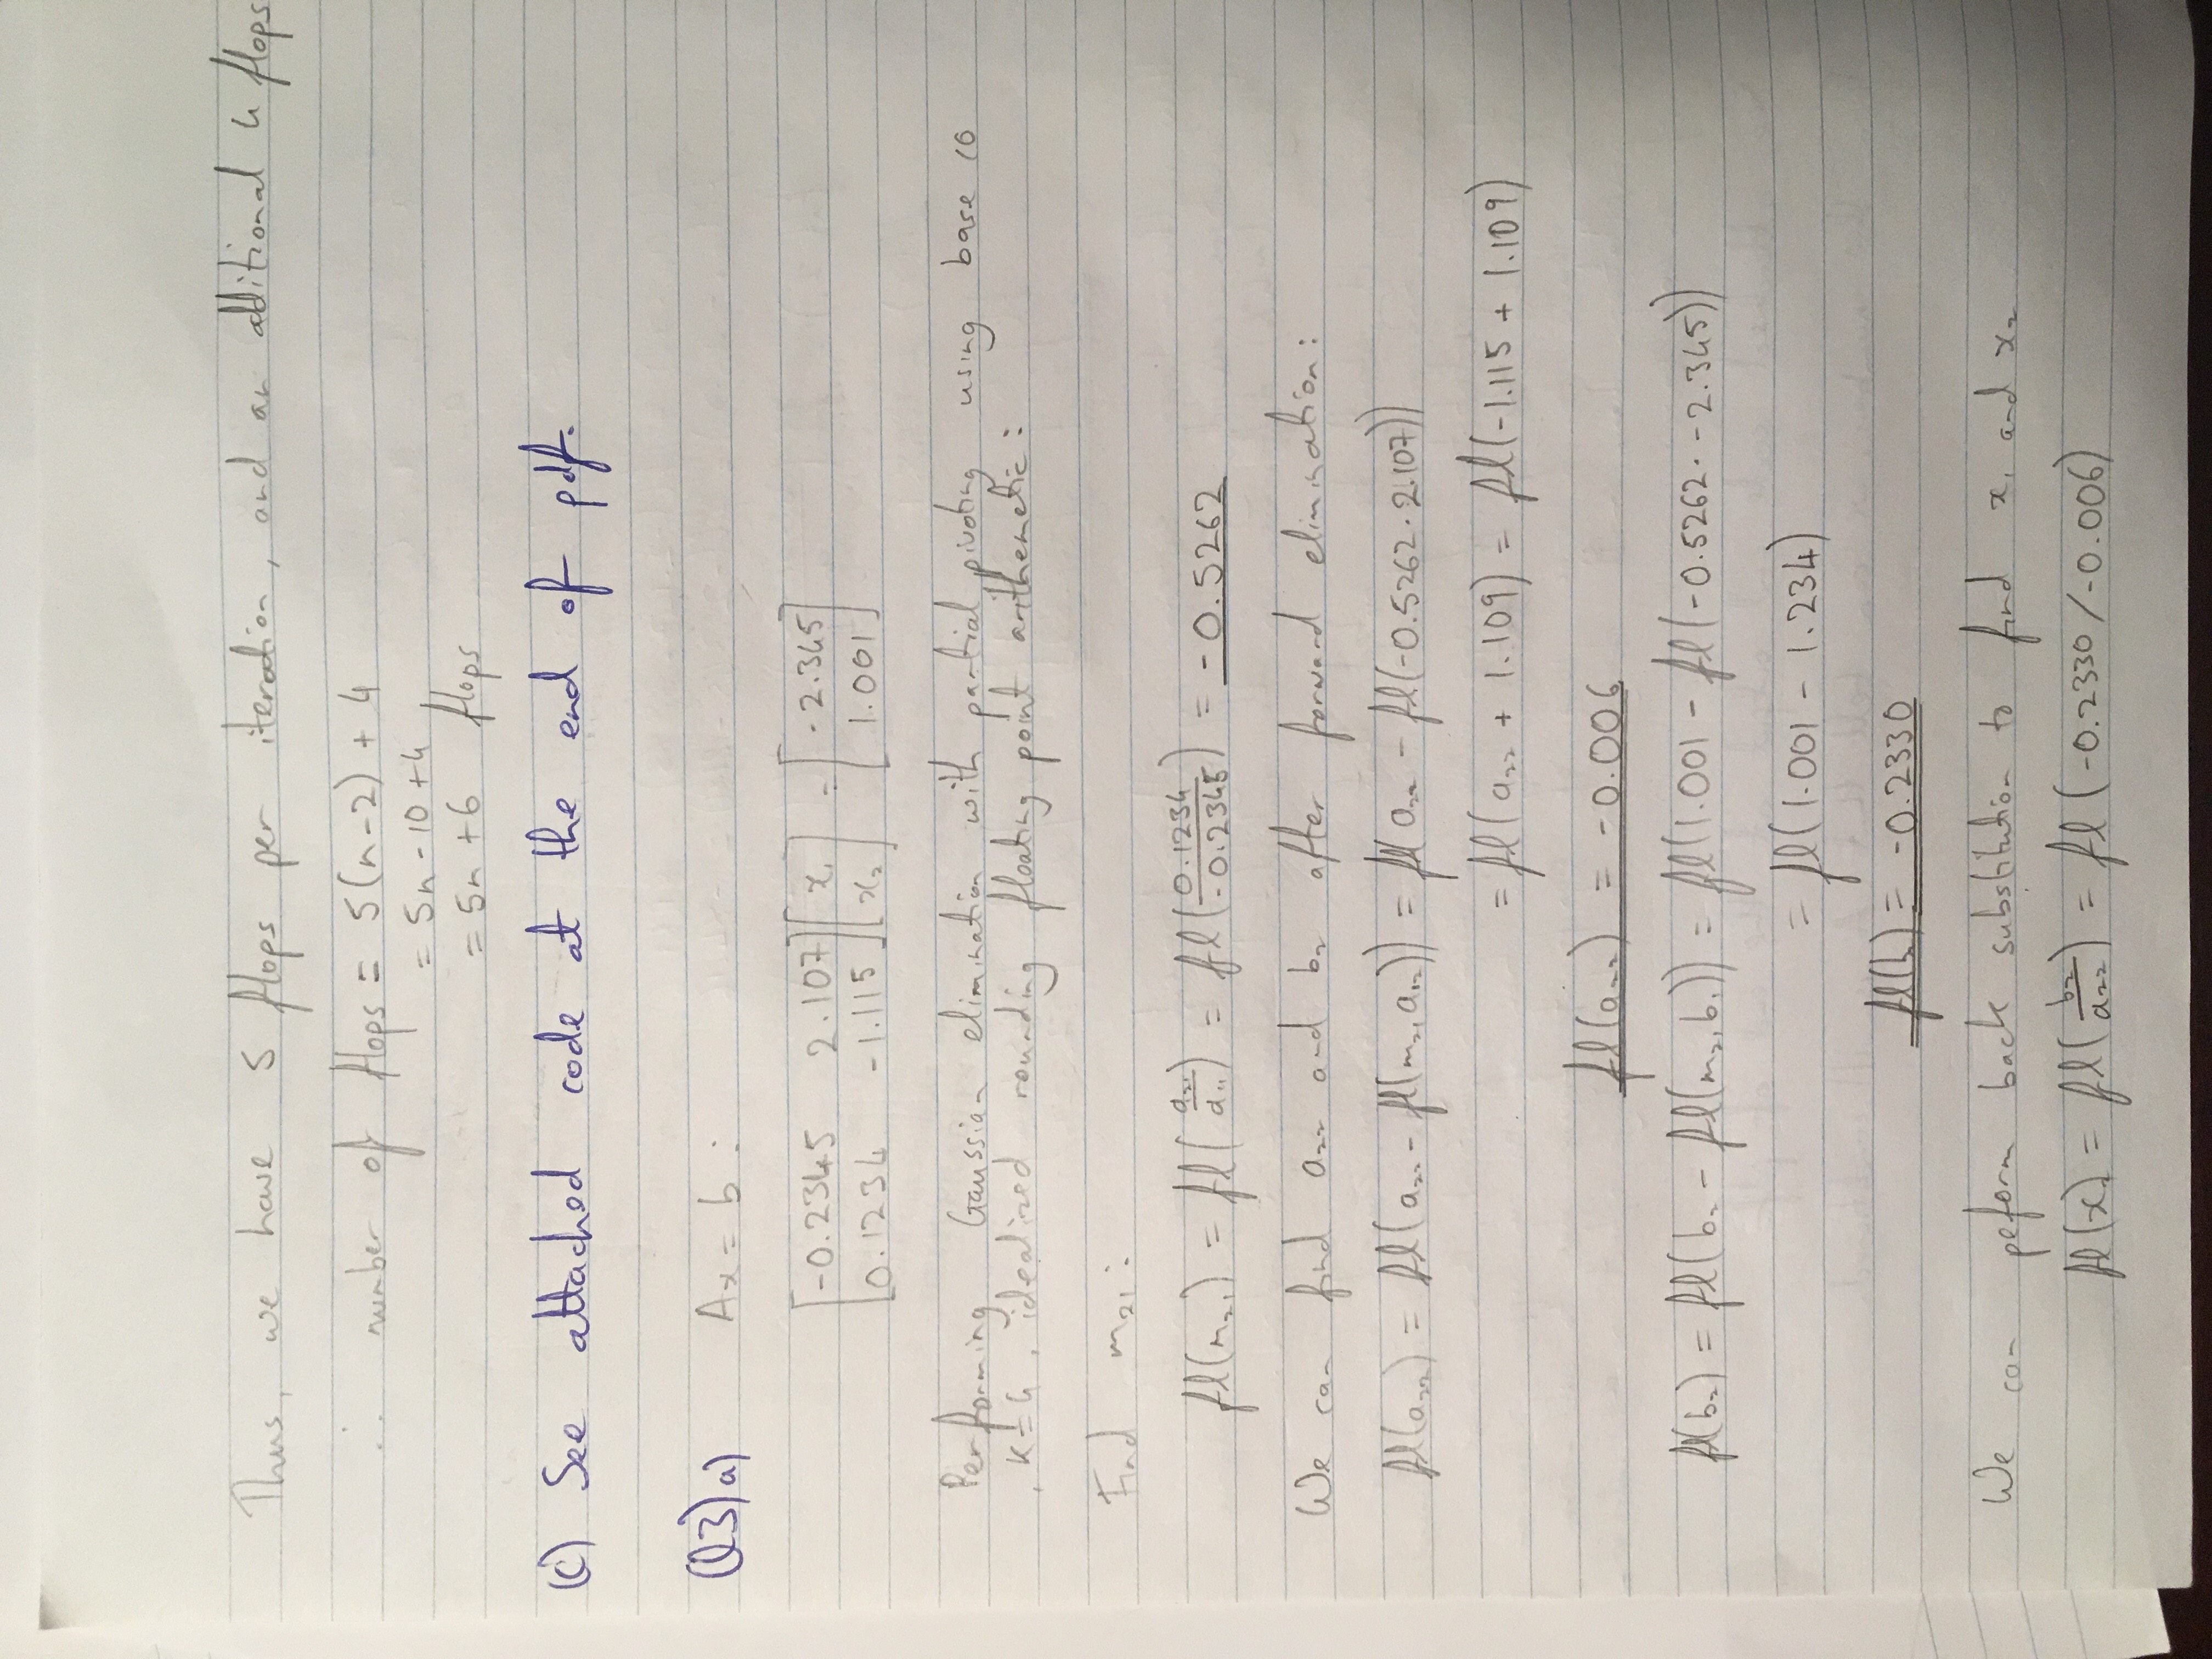 Thus, we have 5 flops per iteration, and an additional 4 flops
∴ number of flops = 5(n-2) + 4
= 5n - 10 + 4
= 5n + 6 flops
(c) See attached code at the end of pdf.
Q3) a) Ax = b :
[-0.2345 2.107] [x₁] = [-2.345]
[0.1234 -1.115] [x₂] [1.001]
Performing Gaussian elimination with partial pivoting using base 10
, K=4, idealized rounding floating point arithemetic:
Find m₂₁:
fl(m₂₁) = fl(a₂₁/a₁₁) = fl(0.1234/-0.2345) = -0.5262
We can find a₂₂ and b₂ after forward elimination:
fl(a₂₂) = fl(a₂₂ - fl(m₂₁a₁₂)) = fl(a₂₂ - fl(-0.5262·2.107))
= fl(a₂₂ + 1.109) = fl(-1.115 + 1.109)
fl(a₂₂) = -0.006
fl(b₂) = fl(b₂ - fl(m₂₁b₁)) = fl(1.001 - fl(-0.5262·-2.345))
= fl(1.001 - 1.234)
fl(b₂) = -0.2330
We can peform back substitution to find x₁ and x₂
fl(x₂) = fl(b₂/a₂₂) = fl(-0.2330/-0.006)